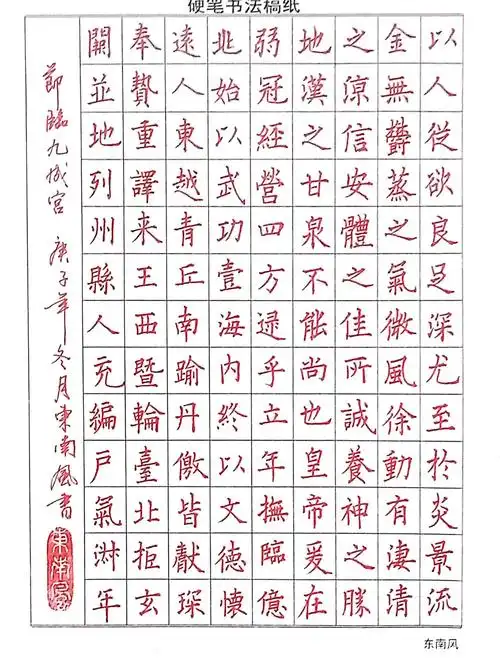 硬笔书法稿纸
以人從欲良足深尤至於炎景流
金無鬱蒸之氣微風徐動有淒清
之涼信安體之佳所誠養神之勝
地漢之甘泉不能尚也皇帝爰在
弱冠經營四方逮乎立年撫臨億
兆始以武功壹海內終以文德懷
遠人東越青丘南踰丹儌皆獻琛
奉贄重譯来王西暨輪臺北拒玄
闕並地列州縣人充編戶氣淑年
節臨九成宮 庚子年冬月東南風書
東南風
东南风